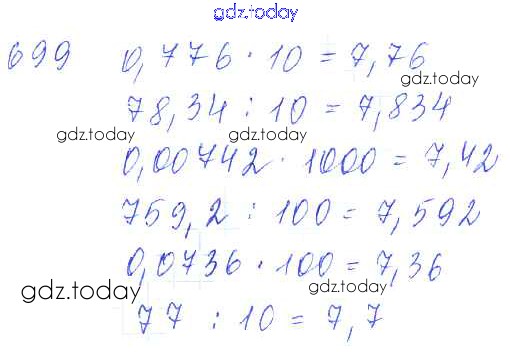 gdz.today
699 0,776 · 10 = 7,76
gdz.today
78,34 : 10 = 7,834
gdz.today gdz.today
0,00742 · 1000 = 7,42
759,2 : 100 = 7,592
0,0736 · 100 = 7,36
gdz.today gdz.today
77 : 10 = 7,7